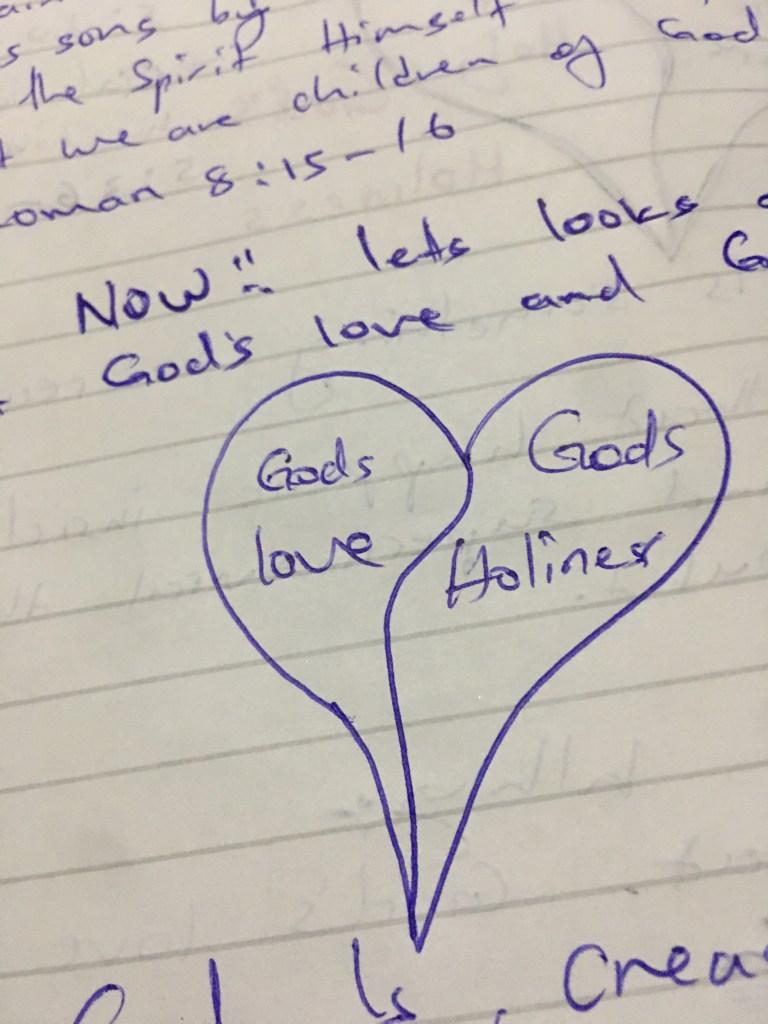 s sons by
the Spirit Himself
we are children of God
oman 8:15-16
Now!! lets looks
God's love and G
Gods
love
Gods
Holiness
Is. Crea